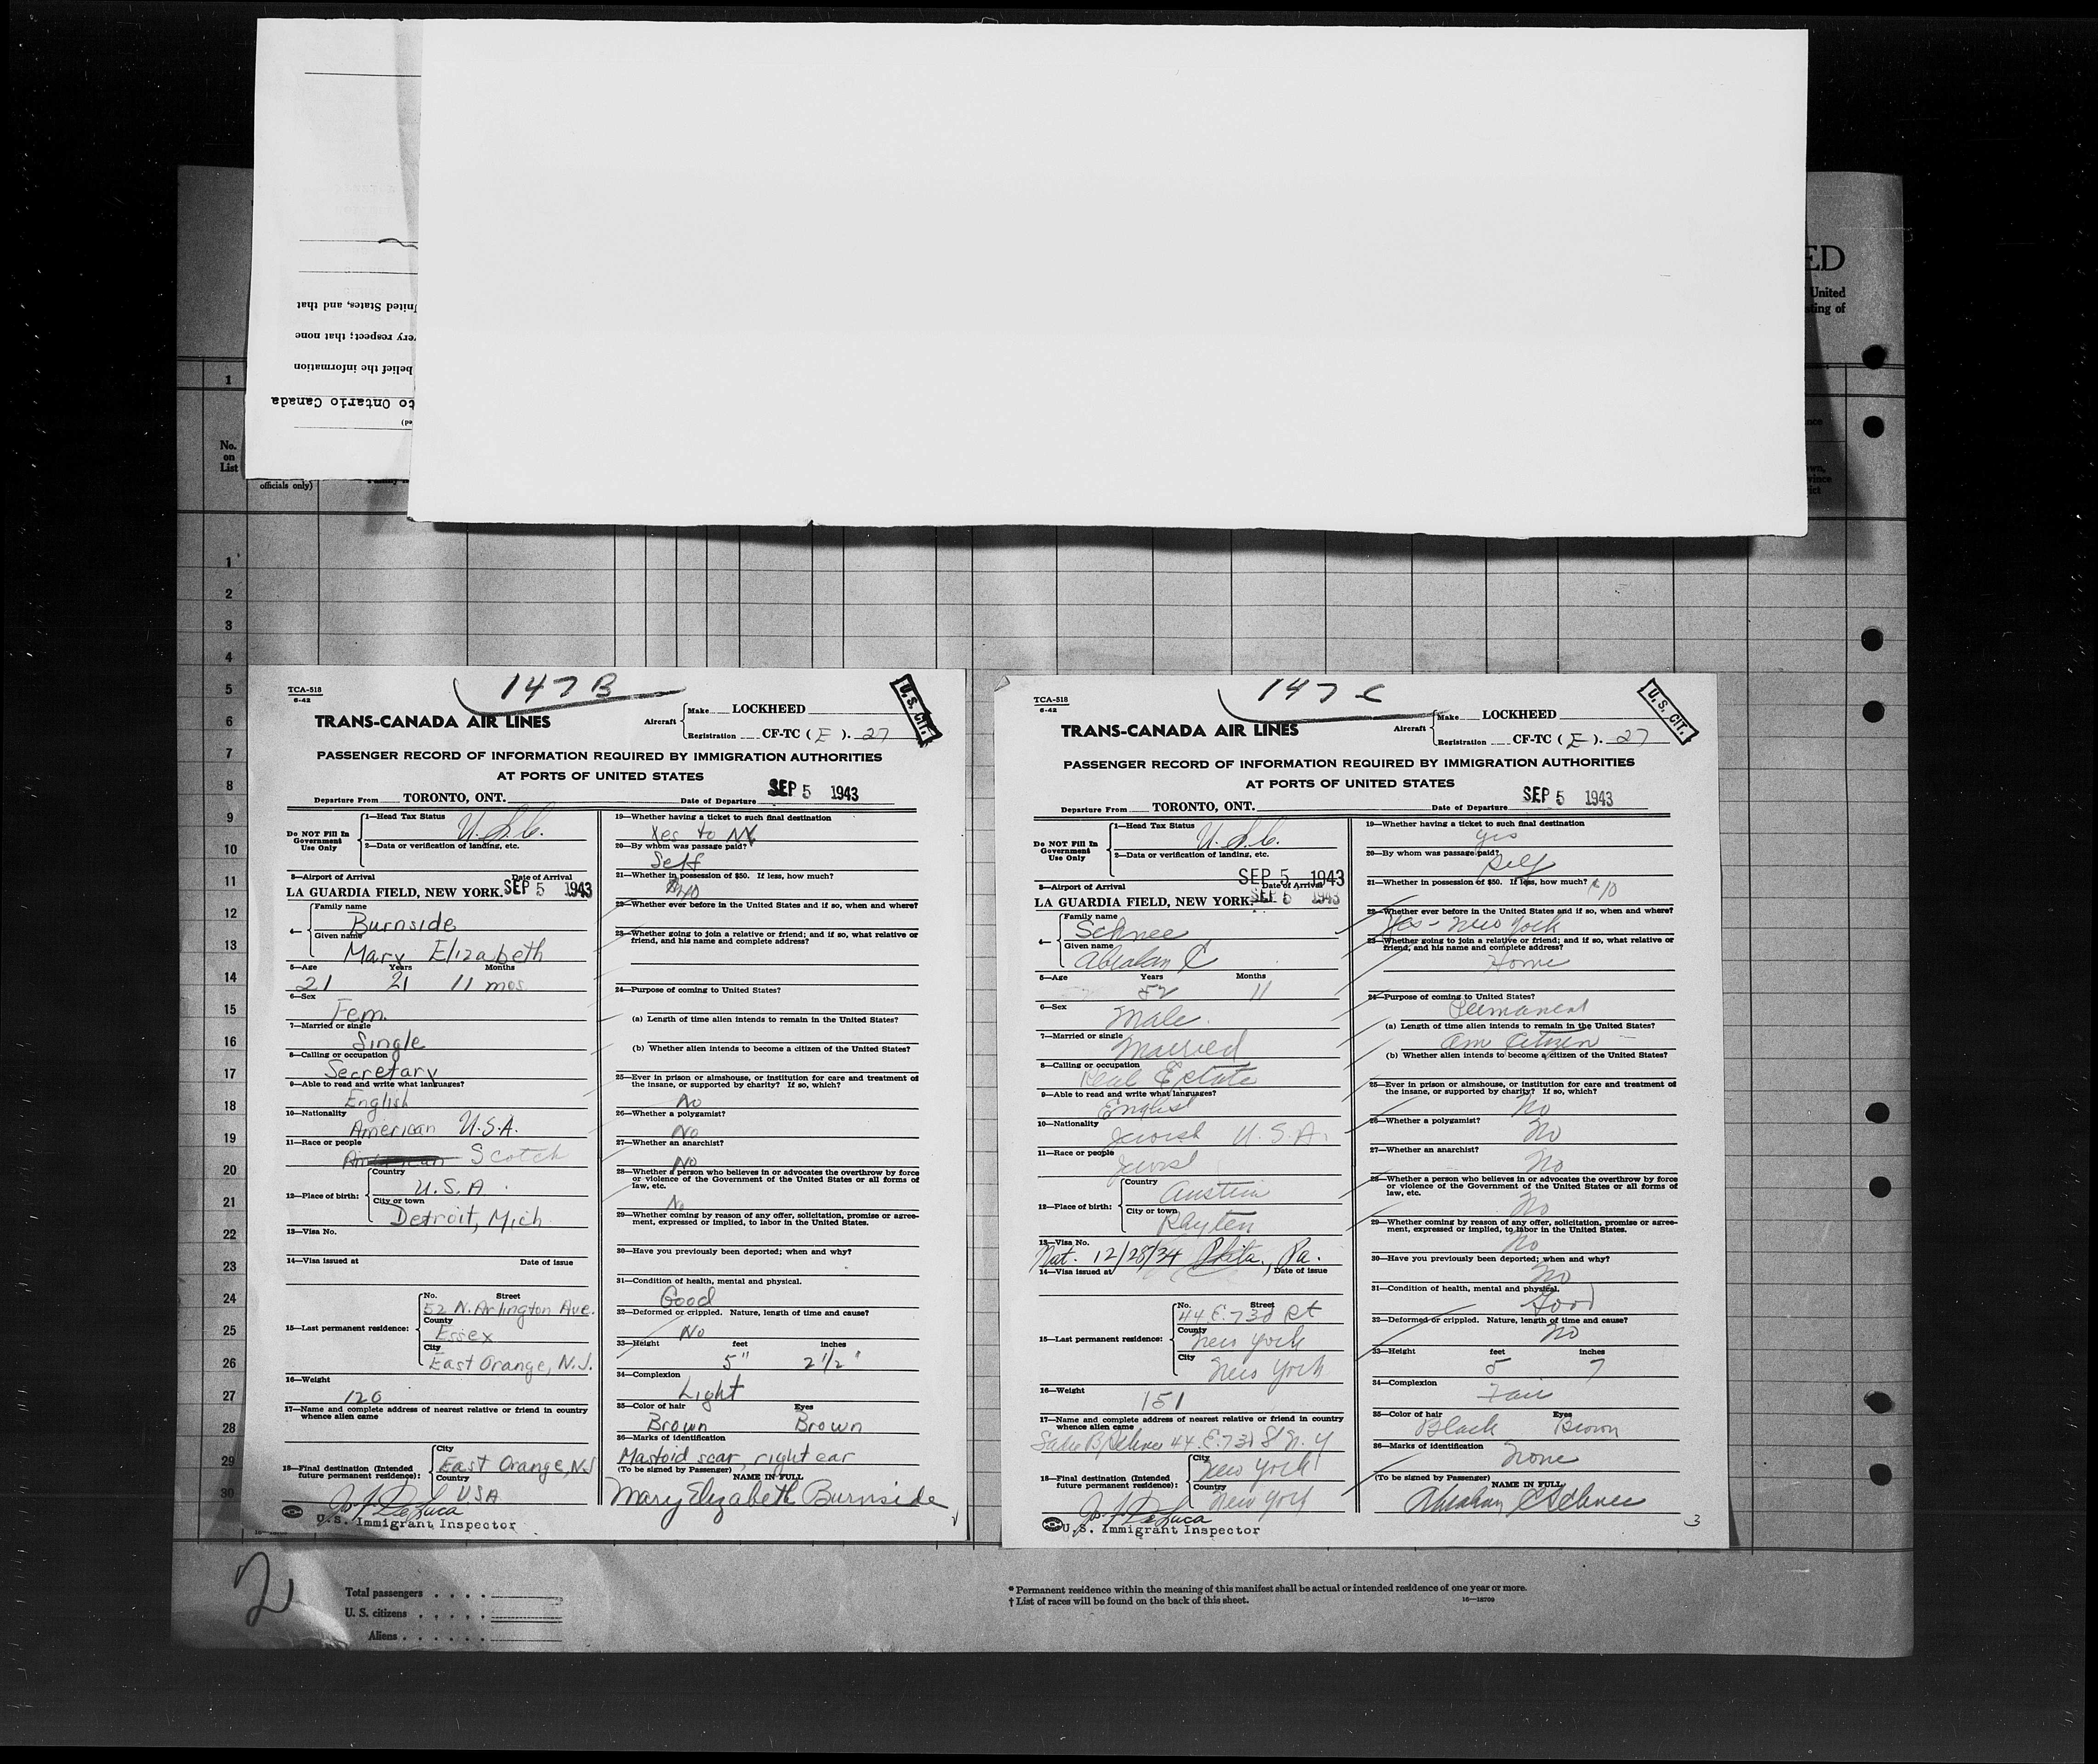 ED
United
sting of
United States, and that
very respect; that none
belief the information
to Ontario Canada
ed)
1
No.
on
List
officials only)
1
2
3
4
5
6
7
8
9
10
11
12
13
14
15
16
17
18
19
20
21
22
23
24
25
26
27
28
29
30
147 B
TCA-518
6-42
U.S. CIT.
TRANS-CANADA AIR LINES
Aircraft
Make LOCKHEED
Registration CF-TC ( E ). 27
PASSENGER RECORD OF INFORMATION REQUIRED BY IMMIGRATION AUTHORITIES
AT PORTS OF UNITED STATES
Departure From TORONTO, ONT. Date of Departure SEP 5 1943
Do NOT Fill In
Government
Use Only
1—Head Tax Status
U.S.C.
2—Data or verification of landing, etc.
3—Airport of Arrival Date of Arrival
LA GUARDIA FIELD, NEW YORK. SEP 5 1943
4— Family name
Burnside
Given name
Mary Elizabeth
5—Age Years Months
21 21 11 mos
6—Sex
Fem.
7—Married or single
Single
8—Calling or occupation
Secretary
9—Able to read and write what languages?
English
10—Nationality
American U.S.A.
11—Race or people
American Scotch
12—Place of birth:
Country
U.S.A.
City or town
Detroit, Mich
13—Visa No.
14—Visa issued at Date of issue
15—Last permanent residence:
No. Street
52 N. Arlington Ave.
County
Essex
City
East Orange, N.J.
16—Weight
120
17—Name and complete address of nearest relative or friend in country
whence alien came
18—Final destination (Intended
future permanent residence):
City
East Orange, NJ
Country
USA
Jos. J. DeLuca
U.S. Immigrant Inspector
19—Whether having a ticket to such final destination
Yes to NY
20—By whom was passage paid?
Self
21—Whether in possession of $50. If less, how much?
$40
22—Whether ever before in the United States and if so, when and where?
23—Whether going to join a relative or friend; and if so, what relative or
friend, and his name and complete address?
24—Purpose of coming to United States?
(a) Length of time alien intends to remain in the United States?
(b) Whether alien intends to become a citizen of the United States?
25—Ever in prison or almshouse, or institution for care and treatment of
the insane, or supported by charity? If so, which?
No
26—Whether a polygamist?
No
27—Whether an anarchist?
No
28—Whether a person who believes in or advocates the overthrow by force
or violence of the Government of the United States or all forms of
law, etc.
No
29—Whether coming by reason of any offer, solicitation, promise or agree-
ment, expressed or implied, to labor in the United States.
30—Have you previously been deported; when and why?
31—Condition of health, mental and physical.
Good
32—Deformed or crippled. Nature, length of time and cause?
No
33—Height feet inches
5" 2 1/2"
34—Complexion
Light
35—Color of hair Eyes
Brown Brown
36—Marks of identification
Mastoid scar, right ear
(To be signed by Passenger)
NAME IN FULL
Mary Elizabeth Burnside
147 C
TCA-518
6-42
U.S. CIT.
TRANS-CANADA AIR LINES
Aircraft
Make LOCKHEED
Registration CF-TC ( E ). 27
PASSENGER RECORD OF INFORMATION REQUIRED BY IMMIGRATION AUTHORITIES
AT PORTS OF UNITED STATES
Departure From TORONTO, ONT. Date of Departure SEP 5 1943
Do NOT Fill In
Government
Use Only
1—Head Tax Status
U.S.C.
2—Data or verification of landing, etc.
SEP 5 1943
3—Airport of Arrival Date of Arrival
LA GUARDIA FIELD, NEW YORK. SEP 5 1943
4— Family name
Schnee
Given name
Abraham C
5—Age Years Months
52 11
6—Sex
Male.
7—Married or single
Married
8—Calling or occupation
Real Estate
9—Able to read and write what languages?
English
10—Nationality
Jewish U.S.A.
11—Race or people
Jewish
12—Place of birth:
Country
Austria
City or town
13—Visa No.
Nat. 12/28/34 Phila., Pa.
14—Visa issued at Date of issue
15—Last permanent residence:
No. Street
44 E. 73d St
County
New York
City
New York
16—Weight
151
17—Name and complete address of nearest relative or friend in country
whence alien came
B Schnee 44 E. 73d St N.Y
18—Final destination (Intended
future permanent residence):
City
New York
Country
New York
Jos. J. DeLuca
U.S. Immigrant Inspector
19—Whether having a ticket to such final destination
yes
20—By whom was passage paid?
Self
21—Whether in possession of $50. If less, how much? $10
22—Whether ever before in the United States and if so, when and where?
Yes - New York
23—Whether going to join a relative or friend; and if so, what relative or
friend, and his name and complete address?
Home
24—Purpose of coming to United States?
Permanent
(a) Length of time alien intends to remain in the United States?
Am Citizen
(b) Whether alien intends to become a citizen of the United States?
25—Ever in prison or almshouse, or institution for care and treatment of
the insane, or supported by charity? If so, which?
No
26—Whether a polygamist?
No
27—Whether an anarchist?
No
28—Whether a person who believes in or advocates the overthrow by force
or violence of the Government of the United States or all forms of
law, etc.
No
29—Whether coming by reason of any offer, solicitation, promise or agree-
ment, expressed or implied, to labor in the United States.
No
30—Have you previously been deported; when and why?
No
31—Condition of health, mental and physical.
Good
32—Deformed or crippled. Nature, length of time and cause?
No
33—Height feet inches
5 7
34—Complexion
Fair
35—Color of hair Eyes
Black Brown
36—Marks of identification
None
(To be signed by Passenger)
NAME IN FULL
Abraham C Schnee
3
2
Total passengers . . . .
U. S. citizens . . . . .
Aliens . . . . . .
* Permanent residence within the meaning of this manifest shall be actual or intended residence of one year or more.
† List of races will be found on the back of this sheet.
16—18709